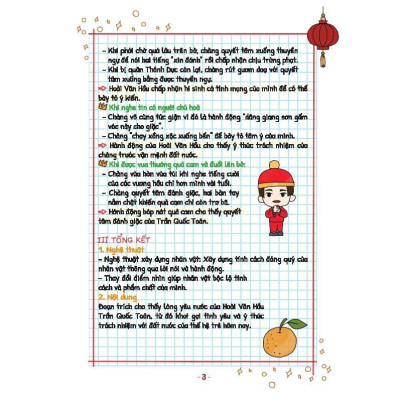 - Khi phải chờ quá lâu trên bờ, chàng quyết tâm xuống thuyền
ngự để nói hai tiếng "xin đánh" rồi chấp nhận chịu trừng phạt.
- Khi bị quân Thánh Dực cản lại, chàng rút gươm doạ với quyết
tâm xuống bằng được thuyền ngự.
=> Hoài Văn Hầu chấp nhận hi sinh cả tính mạng của mình để có thể
bày tỏ ý kiến.
Khi nghe tin có người chủ hoà
- Chàng vô cùng tức giận vì đó là hành động "dâng giang sơn gấm
vóc này cho giặc".
- Chàng "chạy xồng xộc xuống bến" để bày tỏ tâm ý của mình.
=> Hành động của Hoài Văn Hầu cho thấy ý thức trách nhiệm của
chàng trước vận mệnh đất nước.
Khi được vua thưởng quả cam và đuổi lên bờ:
- Chàng vừa hờn vừa tủi khi nghe tiếng cười
của các vương hầu chỉ hơn mình vài tuổi.
- Chàng quyết tâm đánh giặc, hai bàn tay
nắm chặt khiến quả cam chỉ còn trơ bã.
=> Hành động bóp nát quả cam cho thấy quyết
tâm đánh giặc của Trần Quốc Toản.
III TỔNG KẾT
1. Nghệ thuật
- Nghệ thuật xây dựng nhân vật: Xây dựng tính cách đáng quý của
nhân vật thông qua lời nói và hành động.
- Thay đổi điểm nhìn giúp nhân vật bộc lộ tính
cách và phẩm chất của mình.
2. Nội dung
Đoạn trích cho thấy lòng yêu nước của Hoài Văn Hầu
Trần Quốc Toản, từ đó khơi gợi tình yêu và ý thức
trách nhiệm với đất nước của thế hệ trẻ hôm nay.
- 3 -